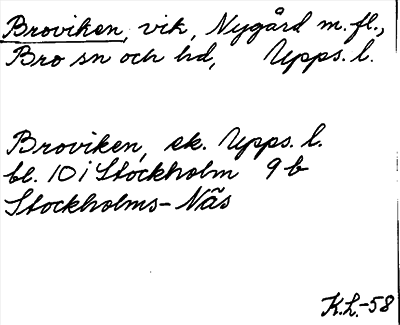 Broviken, vik, Nygård m. fl.,
Bro sn och hd, Upps. l.
Broviken, ek. Upps. l.
bl. 10 i Stockholm 9 b
Stockholms-Näs
K.L.-58